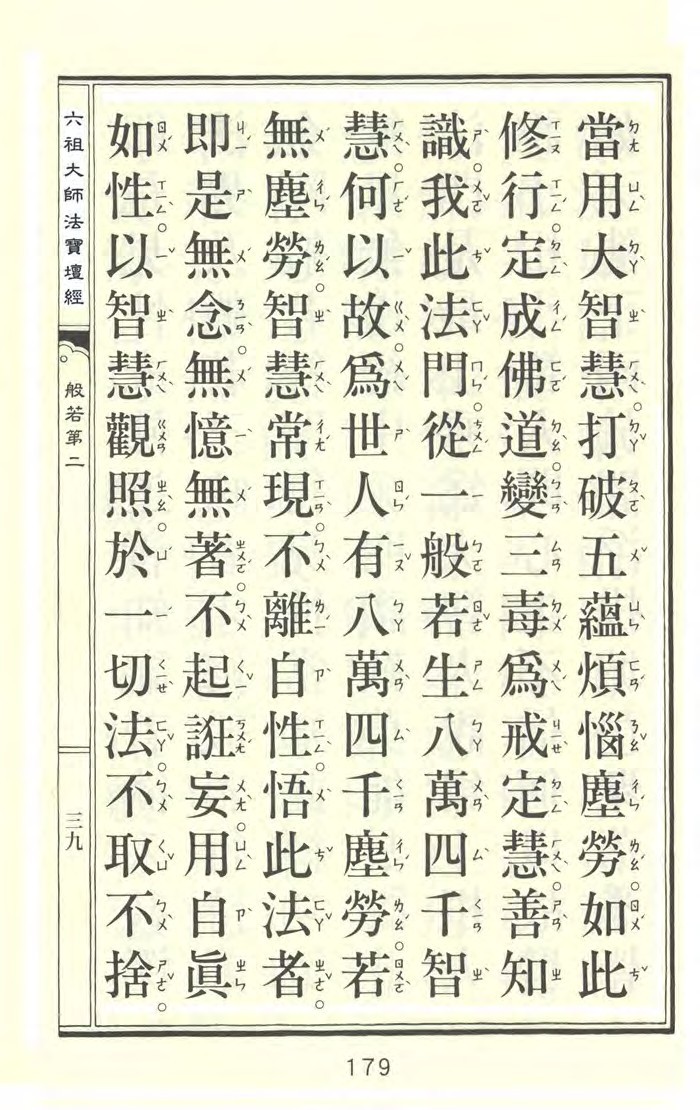 當用大智慧。打破五蘊煩惱塵勞。如此
修行。定成佛道。變三毒爲戒定慧。善知
識。我此法門。從一般若生八萬四千智
慧。何以故。爲世人有八萬四千塵勞。若
無塵勞。智慧常現。不離自性。悟此法者。
即是無念。無憶無著。不起誑妄。用自眞
如性。以智慧觀照。於一切法。不取不捨。
六祖大師法寶壇經
般若第二
三九
179